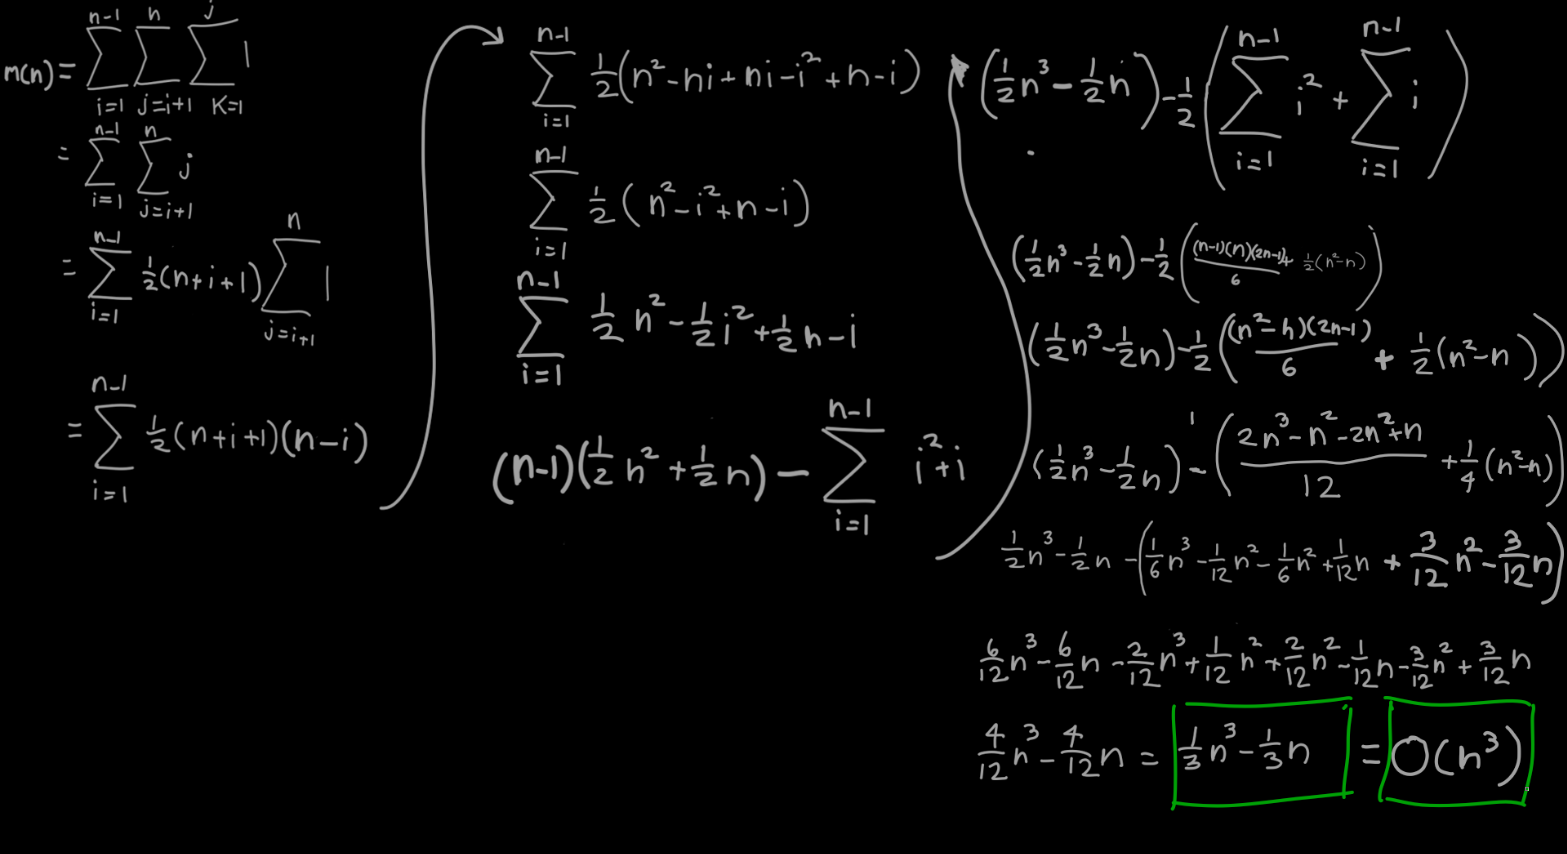 m(n) = \sum_{i=1}^{n-1} \sum_{j=i+1}^{n} \sum_{k=1}^{j} 1
= \sum_{i=1}^{n-1} \sum_{j=i+1}^{n} j
= \sum_{i=1}^{n-1} \frac{1}{2}(n+i+1) \sum_{j=i+1}^{n} 1
= \sum_{i=1}^{n-1} \frac{1}{2}(n+i+1)(n-i)
\sum_{i=1}^{n-1} \frac{1}{2}(n^2-ni+ni-i^2+n-i)
\sum_{i=1}^{n-1} \frac{1}{2}(n^2-i^2+n-i)
\sum_{i=1}^{n-1} \frac{1}{2}n^2-\frac{1}{2}i^2+\frac{1}{2}n-i
(n-1)(\frac{1}{2}n^2+\frac{1}{2}n) - \sum_{i=1}^{n-1} i^2+i
(\frac{1}{2}n^3-\frac{1}{2}n)-\frac{1}{2}(\sum_{i=1}^{n-1} i^2+\sum_{i=1}^{n-1} i)
(\frac{1}{2}n^3-\frac{1}{2}n)-\frac{1}{2}(\frac{(n-1)(n)(2n-1)}{6}+\frac{1}{2}(n^2-n))
(\frac{1}{2}n^3-\frac{1}{2}n)-\frac{1}{2}(\frac{(n^2-n)(2n-1)}{6}+\frac{1}{2}(n^2-n))
(\frac{1}{2}n^3-\frac{1}{2}n)-(\frac{2n^3-n^2-2n^2+n}{12}+\frac{1}{4}(n^2-n))
\frac{1}{2}n^3-\frac{1}{2}n-(\frac{1}{6}n^3-\frac{1}{12}n^2-\frac{1}{6}n^2+\frac{1}{12}n+\frac{3}{12}n^2-\frac{3}{12}n)
\frac{6}{12}n^3-\frac{6}{12}n-\frac{2}{12}n^3+\frac{1}{12}n^2+\frac{2}{12}n^2-\frac{1}{12}n-\frac{3}{12}n^2+\frac{3}{12}n
\frac{4}{12}n^3-\frac{4}{12}n=\frac{1}{3}n^3-\frac{1}{3}n=O(n^3)